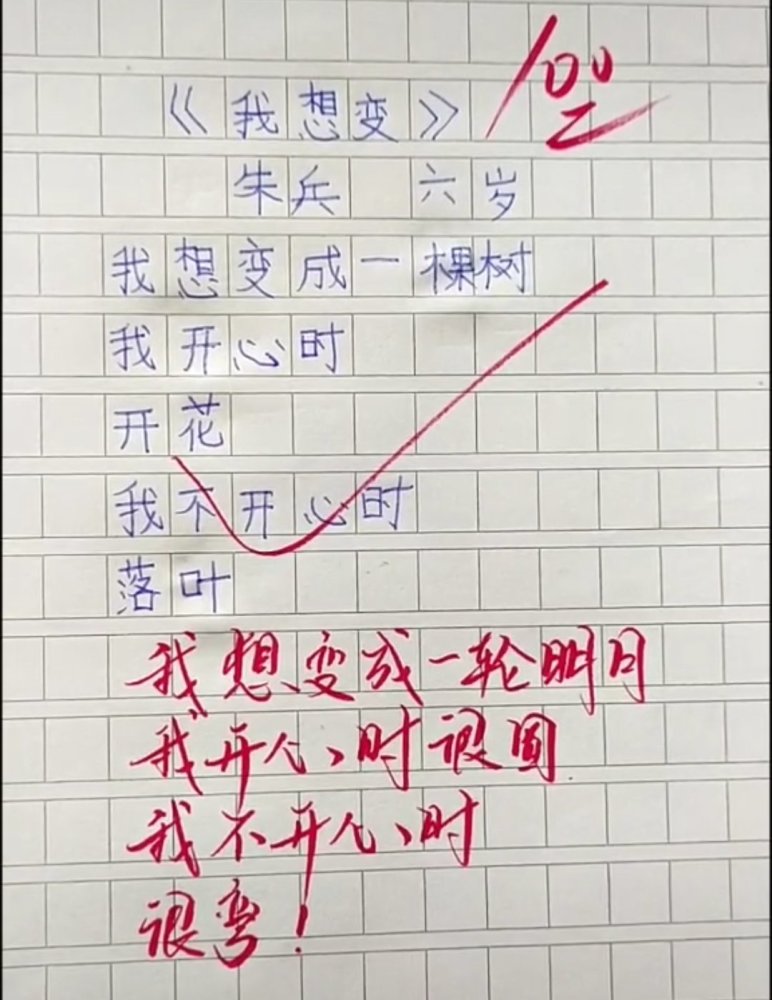 《我想变》 100
朱兵 六岁
我想变成一棵树
我开心时
开花
我不开心时
落叶
我想变成一轮明月
我开心时很圆
我不开心时
很弯！